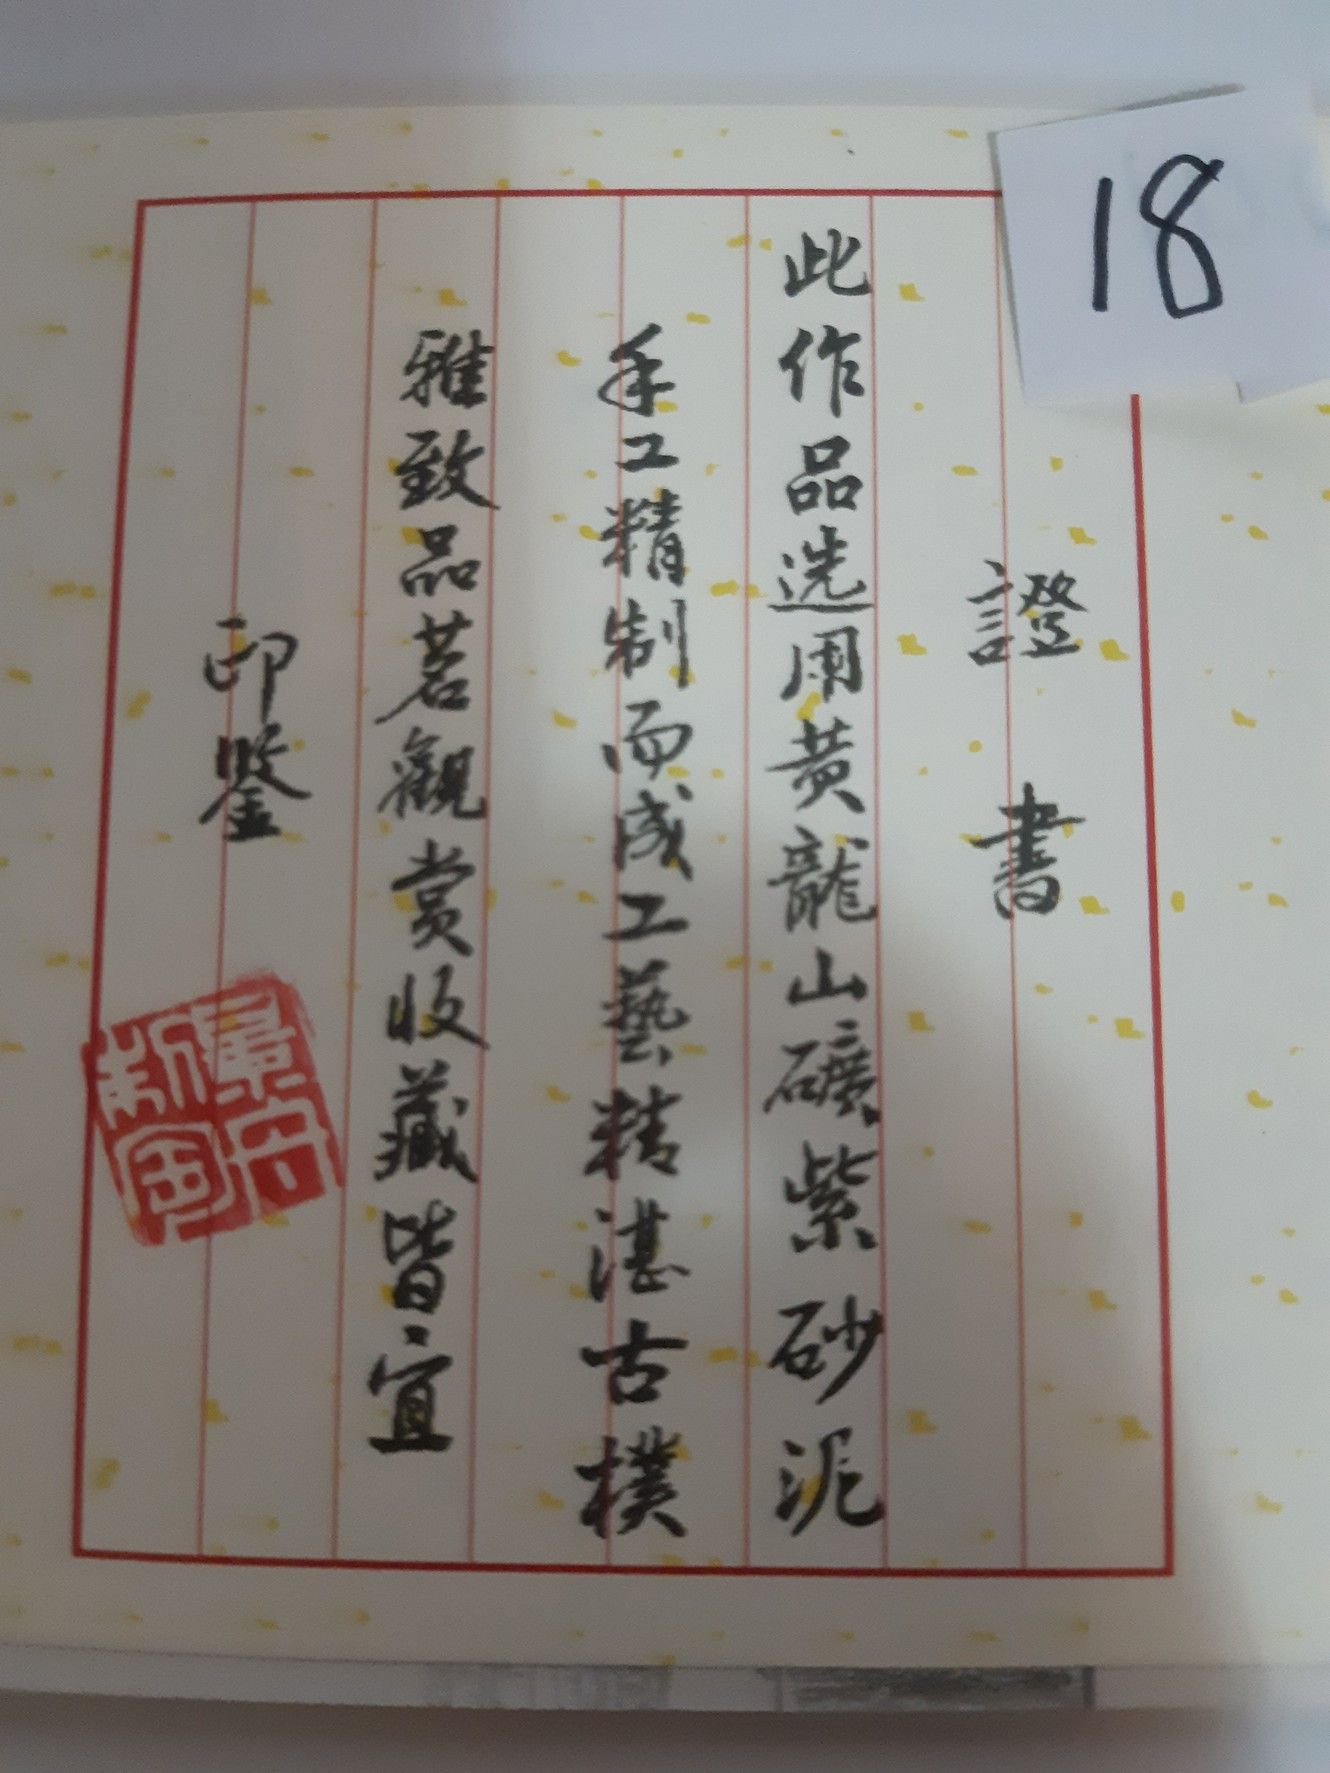 18
證書
此作品选用黄龍山礦紫砂泥
手工精制而成工藝精湛古樸
雅致品茗觀赏收藏皆宜
印鑒